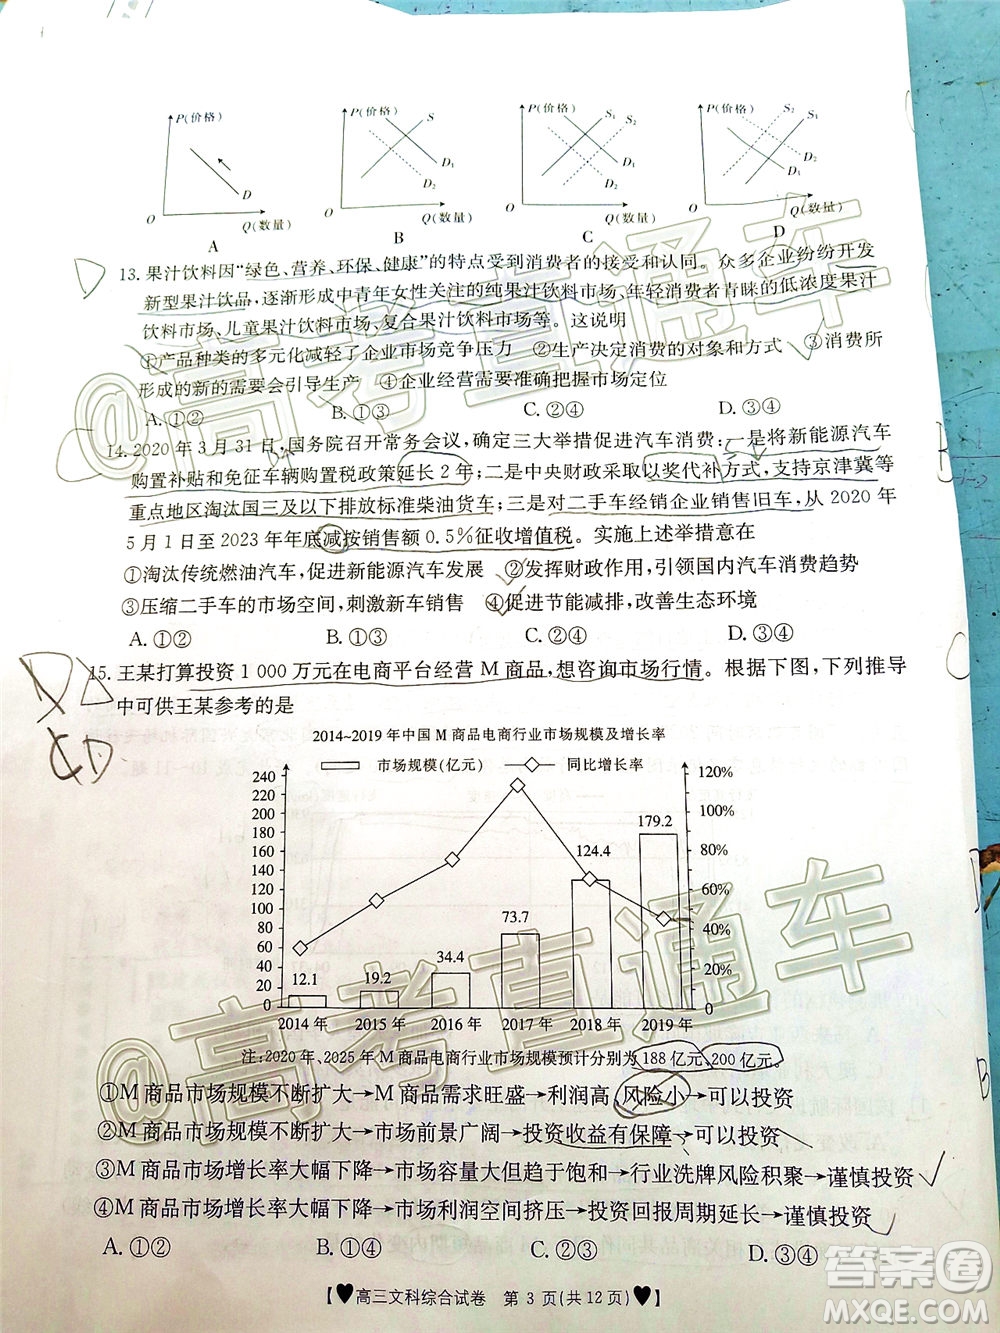 P(价格) D O Q(数量) A
P(价格) S D₁ D₂ O Q(数量) B
P(价格) S₁ S₂ D₁ D₂ O Q(数量) C
P(价格) S₂ S₁ D₂ D₁ O Q(数量) D
D
13.果汁饮料因“绿色、营养、环保、健康”的特点受到消费者的接受和认同。众多企业纷纷开发
新型果汁饮品,逐渐形成中青年女性关注的纯果汁饮料市场、年轻消费者青睐的低浓度果汁
饮料市场、儿童果汁饮料市场、复合果汁饮料市场等。这说明
①产品种类的多元化减轻了企业市场竞争压力 ②生产决定消费的对象和方式 ③消费所
形成的新的需要会引导生产 ④企业经营需要准确把握市场定位
A.①② B.①③ C.②④ D.③④
14.2020年3月31日,国务院召开常务会议,确定三大举措促进汽车消费:一是将新能源汽车
购置补贴和免征车辆购置税政策延长2年;二是中央财政采取以奖代补方式,支持京津冀等
重点地区淘汰国三及以下排放标准柴油货车;三是对二手车经销企业销售旧车,从2020年
5月1日至2023年年底减按销售额0.5%征收增值税。实施上述举措意在
①淘汰传统燃油汽车,促进新能源汽车发展 ②发挥财政作用,引领国内汽车消费趋势
③压缩二手车的市场空间,刺激新车销售 ④促进节能减排,改善生态环境
A.①② B.①③ C.②④ D.③④
15.王某打算投资1 000万元在电商平台经营M商品,想咨询市场行情。根据下图,下列推导
中可供王某参考的是
2014~2019年中国M商品电商行业市场规模及增长率
市场规模(亿元) 同比增长率
240 220 200 180 160 140 120 100 80 60 40 20 0
120% 100% 80% 60% 40% 20% 0
12.1 19.2 34.4 73.7 124.4 179.2
2014年 2015年 2016年 2017年 2018年 2019年
注:2020年、2025年M商品电商行业市场规模预计分别为188亿元、200亿元。
①M商品市场规模不断扩大→M商品需求旺盛→利润高、风险小→可以投资
②M商品市场规模不断扩大→市场前景广阔→投资收益有保障→可以投资
③M商品市场增长率大幅下降→市场容量大但趋于饱和→行业洗牌风险积聚→谨慎投资
④M商品市场增长率大幅下降→市场利润空间挤压→投资回报周期延长→谨慎投资
A.①② B.①③ C.②③ D.③④
【♥高三文科综合试卷 第3页(共12页)♥】
@高考直通车
@高考直通车
答案圈
MXQE.COM